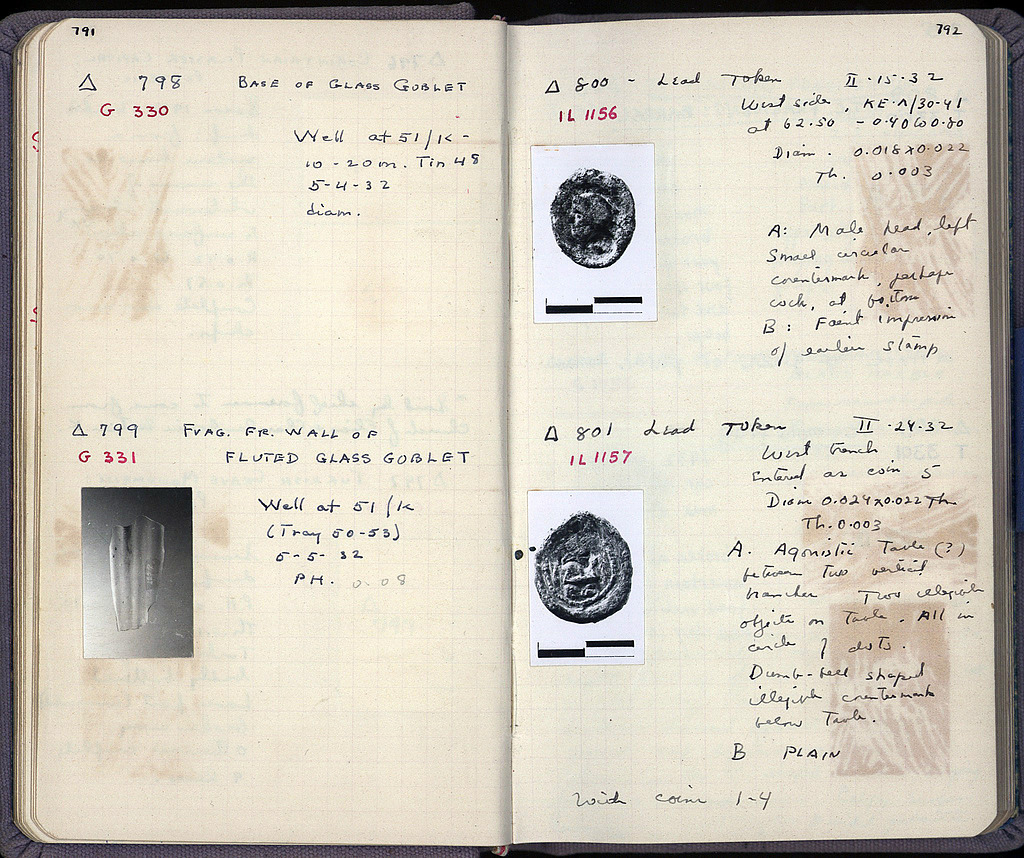 791
Δ 798 BASE OF GLASS GOBLET
G 330
Well at 51/K-
10-20m. Tin 48
5-4-32
diam.
Δ 799 FRAG. FR. WALL OF
G 331 FLUTED GLASS GOBLET
Well at 51/K
(Tray 50-53)
5-5-32
PH. 0.08
792
Δ 800 - Lead Token II·15·32
IL 1156
West side, KE·Λ/30-41
at 62.50 - 0.40 to 0.80
Diam. 0.018x0.022
Th. 0.003
A: Male head, left
Small circular
countermark, perhaps
cock, at bottom
B: Faint impression
of earlier stamp
Δ 801 Lead Token II·24·32
IL 1157
West trench
Entered as coin 5
Diam 0.024x0.022 Th
Th. 0.003
A. Agonistic Table (?)
between two vertical
branches Two illegible
objects on Table. All in
circle of dots.
Dumb-bell shaped
illegible countermark
below Table.
B PLAIN
with coins 1-4